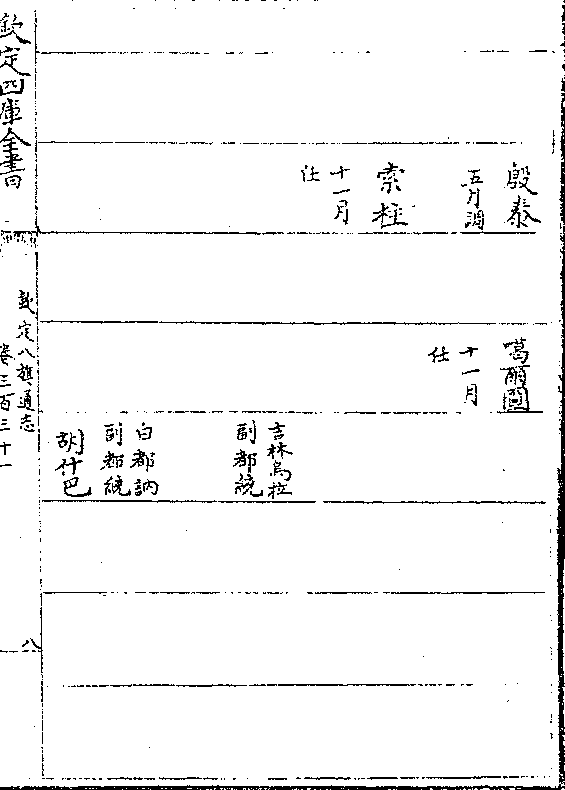 殷泰
五月調
索柱
十一月
仕
噶爾圖
十一月
仕
吉林烏拉
副都統
白都訥
副都統
胡什巴
欽定四庫全書
欽定八旗通志
卷三百三十一
八